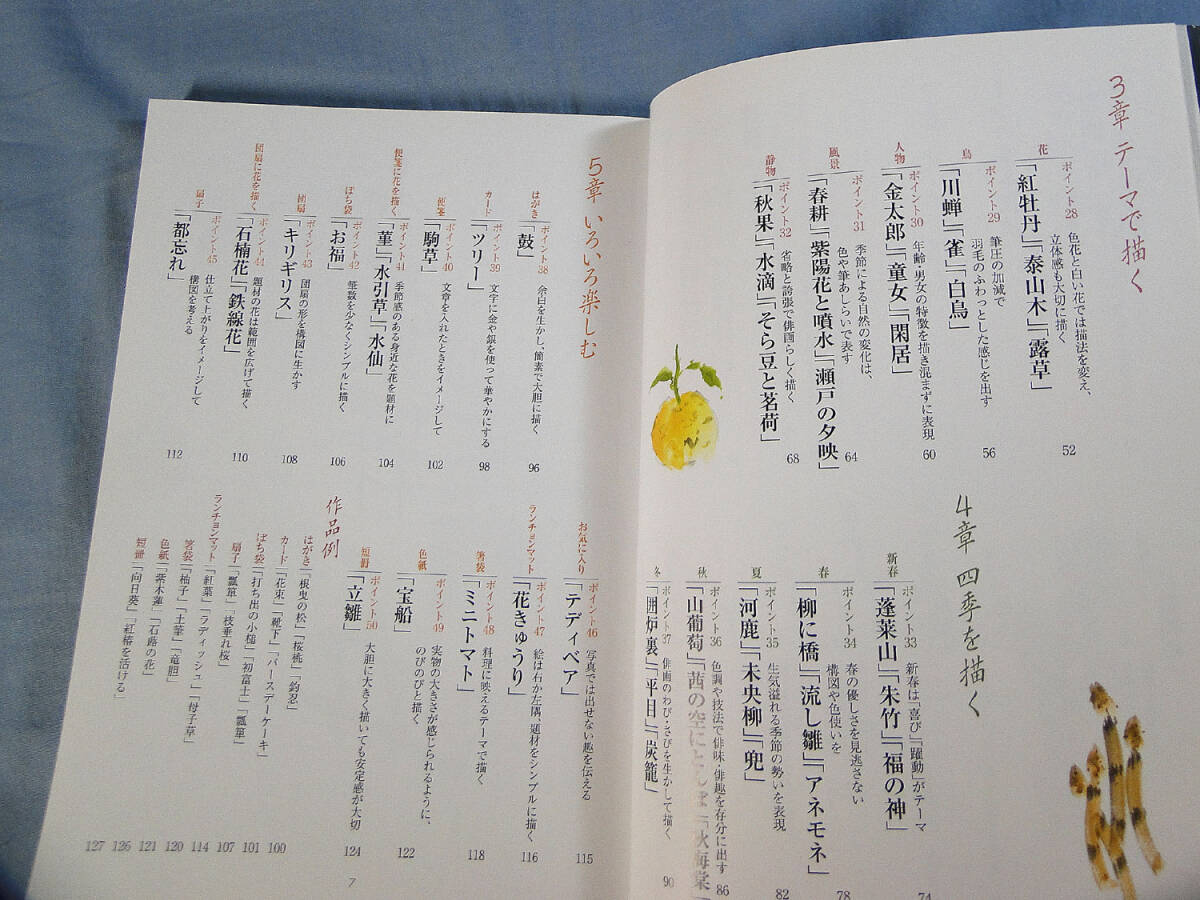 3章 テーマで描く
花
ポイント28 色花と白い花では描法を変え、
立体感も大切に描く
「紅牡丹」「泰山木」「露草」
52
鳥
ポイント29 筆圧の加減で
羽毛のふわっとした感じを出す
「川蝉」「雀」「白鳥」
56
人物
ポイント30 年齢・男女の特徴を描き混まずに表現
「金太郎」「童女」「閑居」
60
風景
ポイント31 季節による自然の変化は、
色や筆あしらいで表す
「春耕」「紫陽花と噴水」「瀬戸の夕映」
64
静物
ポイント32 省略と誇張で俳画らしく描く
「秋果」「水滴」「そら豆と茗荷」
68
4章 四季を描く
新春
ポイント33 新春は「喜び」「躍動」がテーマ
「蓬莱山」「朱竹」「福の神」
74
春
ポイント34 春の優しさを見逃さない
構図や色使いを
「柳に橋」「流し雛」「アネモネ」
78
夏
ポイント35 生気溢れる季節の勢いを表現
「河鹿」「未央柳」「兜」
82
秋
ポイント36 色調や技法で俳味・俳趣を存分に出す
「山葡萄」「茜の空にとんぼ」「秋海棠」
86
冬
ポイント37 俳画のわび・さびを生かして描く
「囲炉裏」「平目」「炭籠」
90
5章 いろいろ楽しむ
はがき
ポイント38 余白を生かし、簡素で大胆に描く
「鼓」
96
カード
ポイント39 文字に金や銀を使って華やかにする
「ツリー」
98
便箋
ポイント40 文章を入れたときをイメージして
「駒草」
102
便箋に花を描く
ポイント41 季節感のある身近な花を題材に
「菫」「水引草」「水仙」
104
ぽち袋
ポイント42 筆数を少なくシンプルに描く
「お福」
106
団扇
ポイント43 団扇の形を構図に生かす
「キリギリス」
108
団扇に花を描く
ポイント44 題材の花は範囲を広げて描く
「石楠花」「鉄線花」
110
扇子
ポイント45 仕立て上がりをイメージして
構図を考える
「都忘れ」
112
お気に入り
ポイント46 写真では出せない趣を伝える
「テディベア」
115
ランチョンマット
ポイント47 絵は右か左隅、題材をシンプルに描く
「花きゅうり」
116
箸袋
ポイント48 料理に映えるテーマで描く
「ミニトマト」
118
色紙
ポイント49 実物の大きさが感じられるように、
のびのびと描く
「宝船」
122
短冊
ポイント50 大胆に大きく描いても安定感が大切
「立雛」
124
作品例
はがき「根曳の松」「桜桃」「釣忍」
100
カード「花束」「靴下」「バースデーケーキ」
101
ぽち袋「打ち出の小槌」「初富士」「瓢箪」
107
扇子「瓢箪」「枝垂れ桜」
114
ランチョンマット「紅葉」「ラディッシュ」「母子草」
120
箸袋「柚子」「土筆」「竜胆」
121
色紙「紫木蓮」「石蕗の花」
126
短冊「向日葵」「紅椿を活ける」
127
7